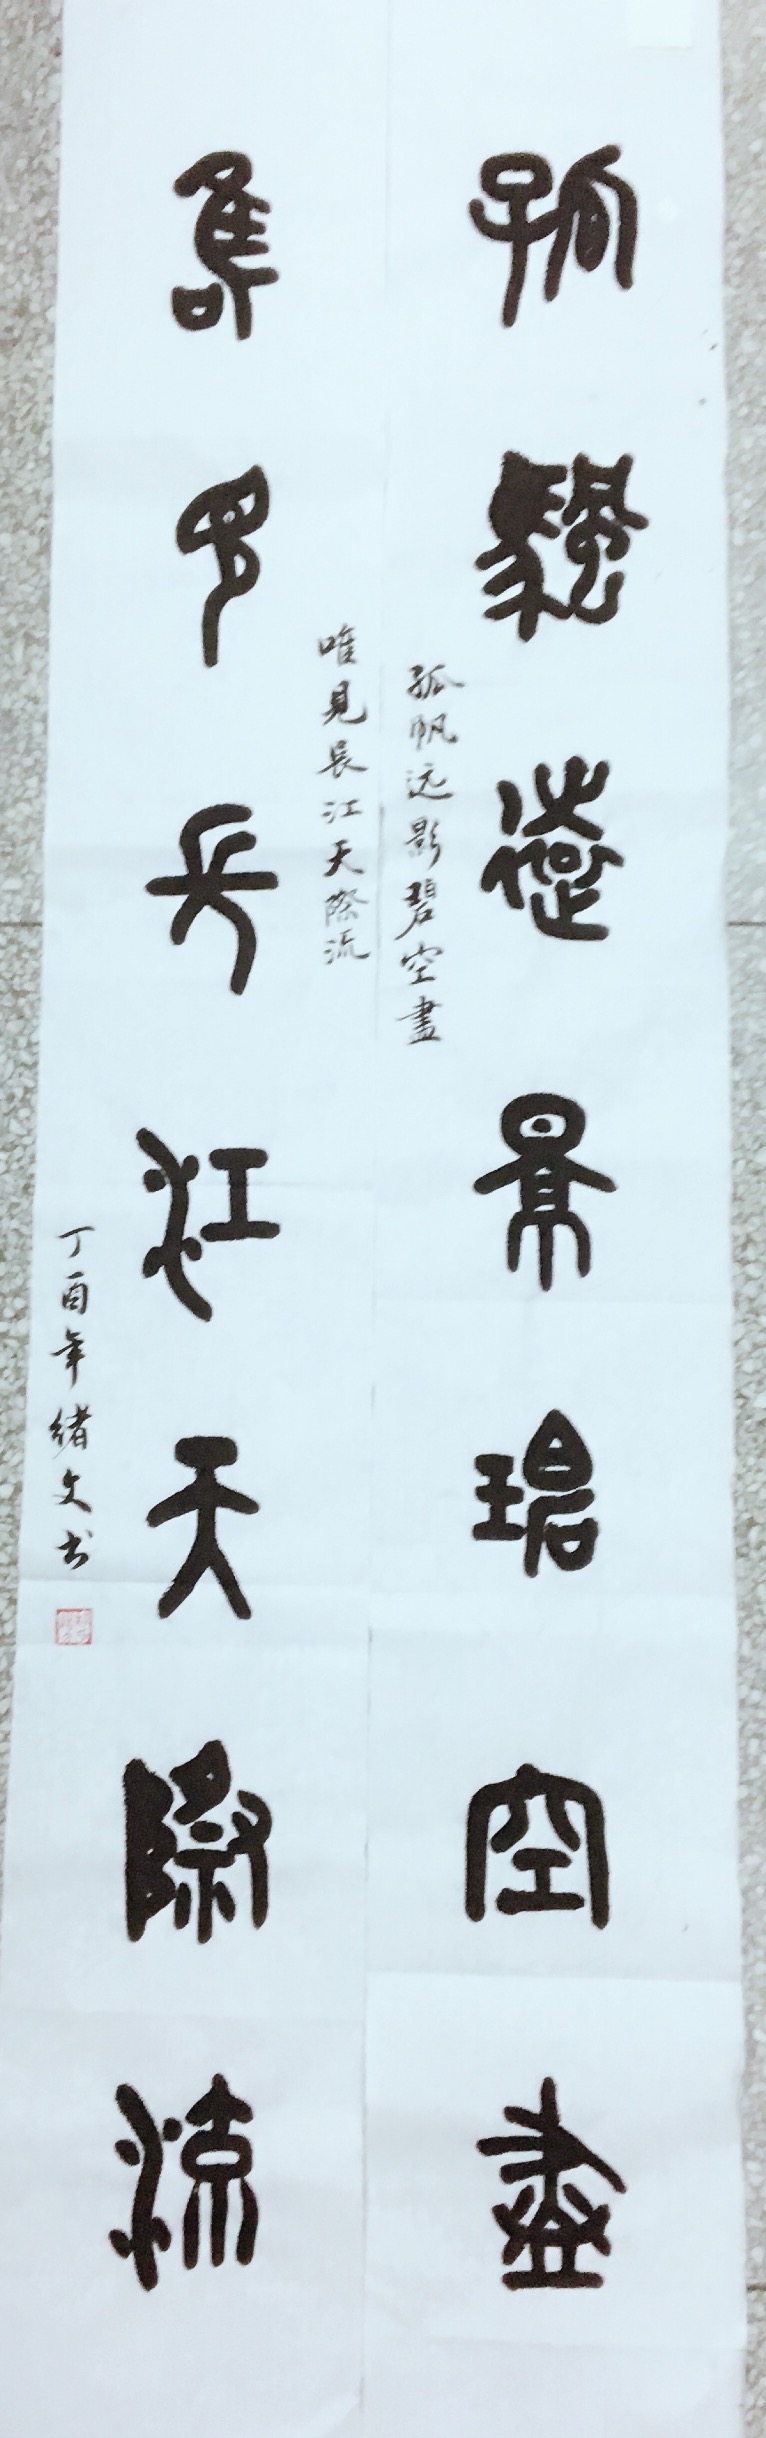 孤帆遠影碧空盡
孤帆远影碧空盡
唯見長江天際流
唯見長江天際流
丁酉年绪文书